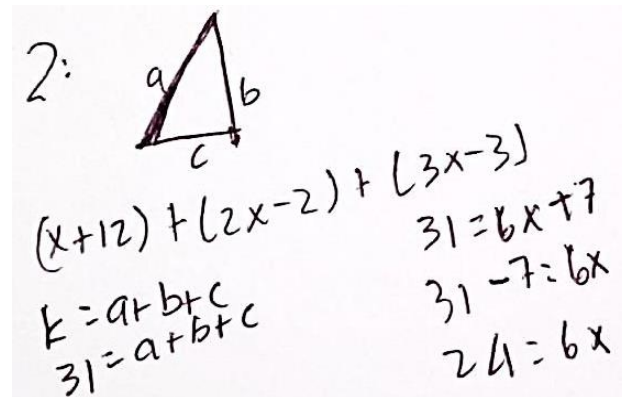 2:
a
b
c
(x+12) + (2x-2) + (3x-3)
k = a+b+c
31 = a+b+c
31 = 6x+7
31 - 7 = 6x
24 = 6x